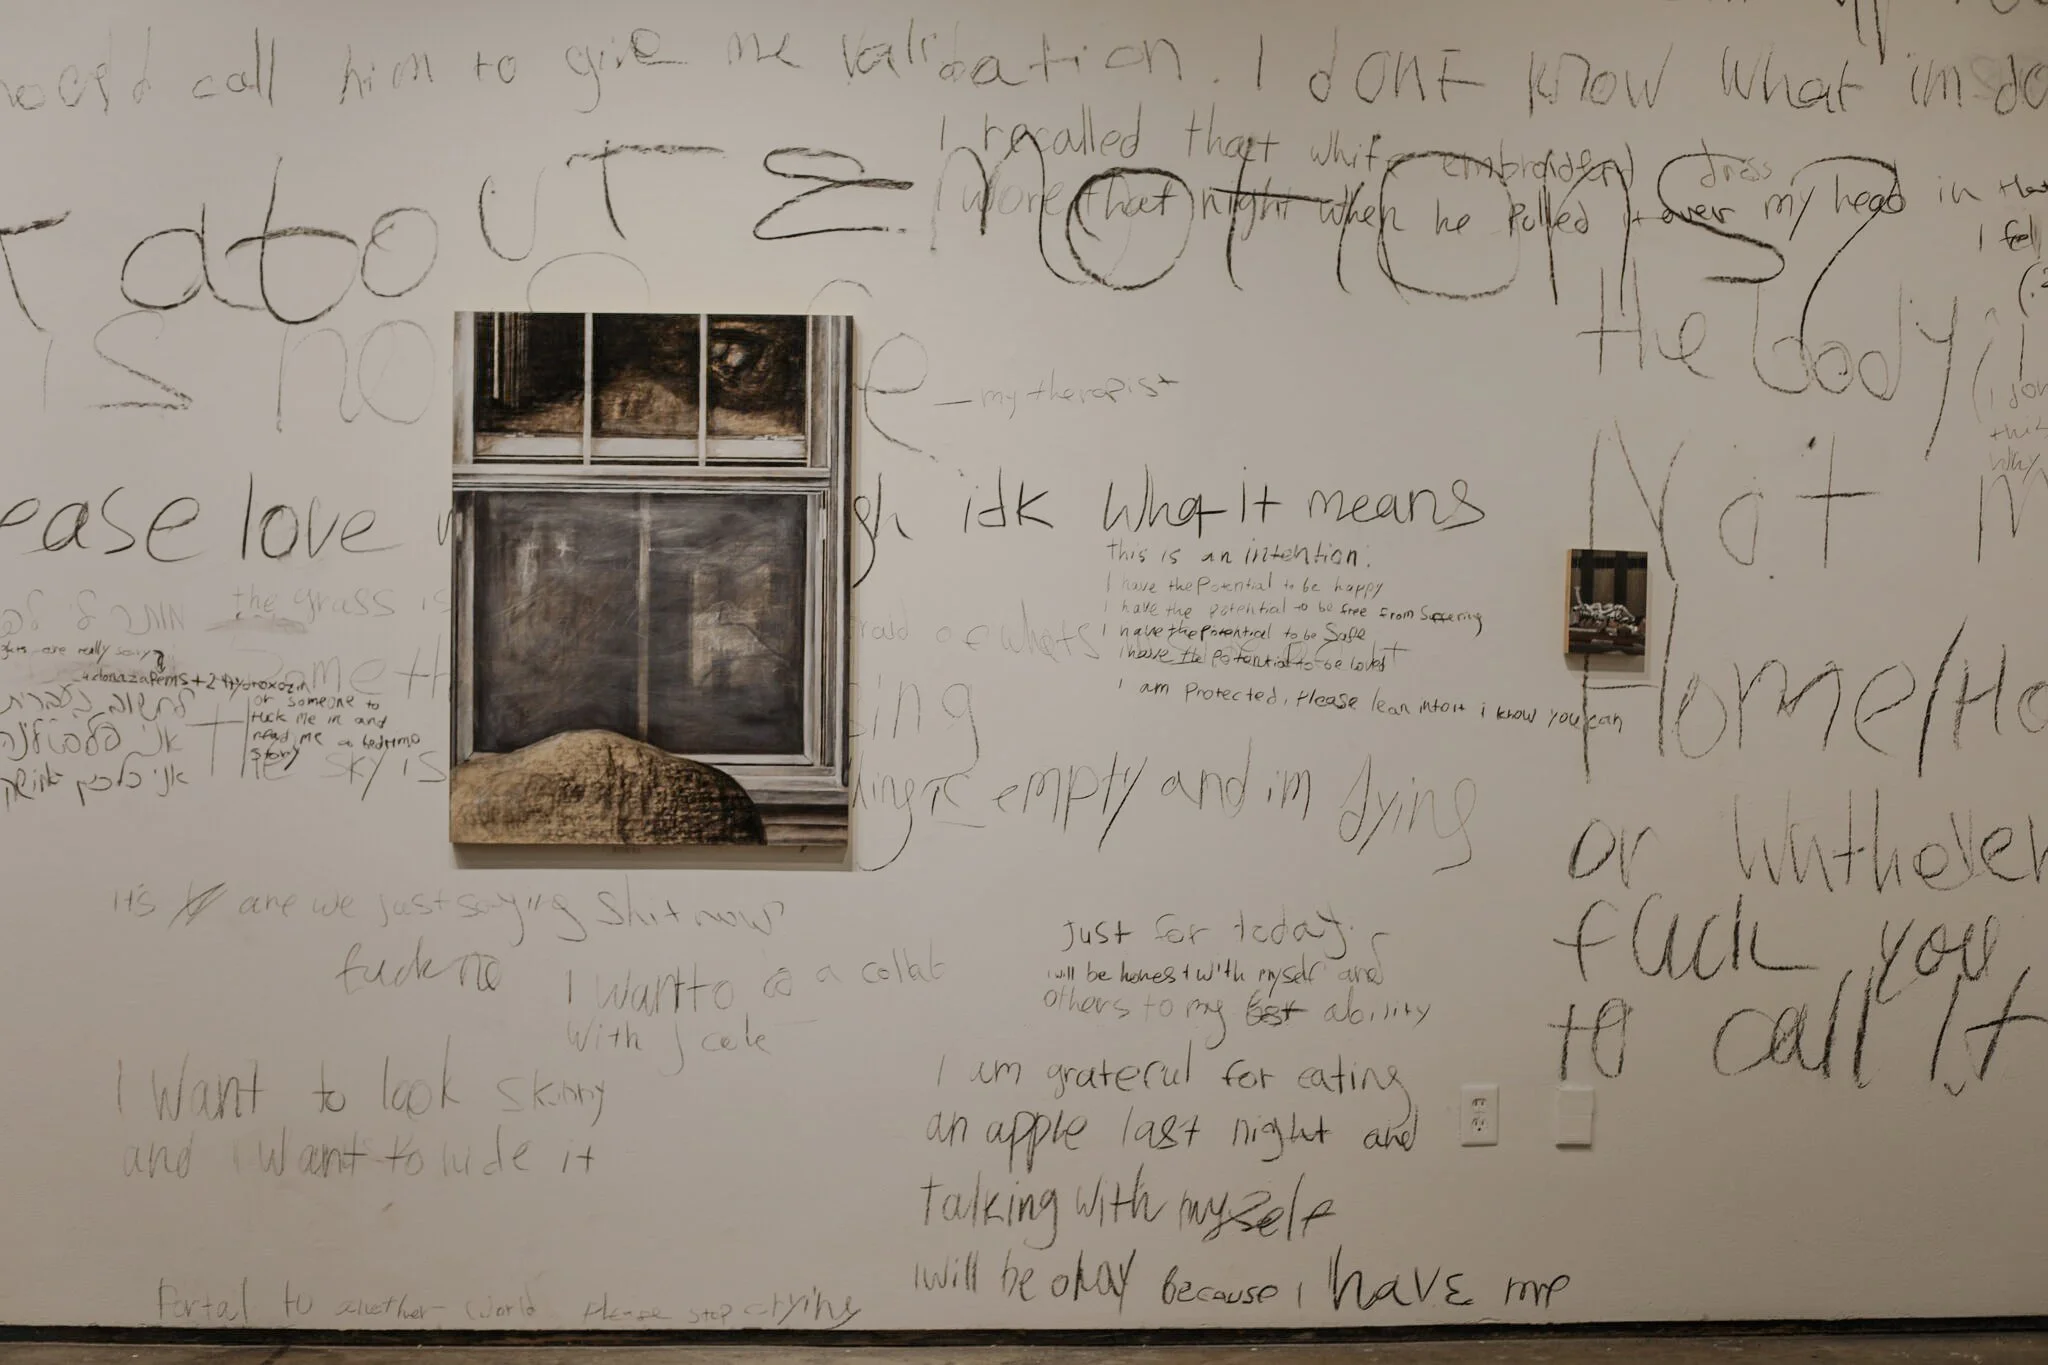 call him to give me validation. I dont know what im do
I recalled that white embroidered dress
I wore that night when he pulled it over my head in that
I feel
T about Emotions?
is no
e — my therapist
the body
Not M
Home/Ho
or whthever
fuck you
to call it
ease love
gh idk what it means
this is an intention:
I have the potential to be happy
I have the potential to be free from suffering
I have the potential to be safe
I have the potential to be loved
I am protected, please lean into it i know you can
the grass is
are really scary
or someone to
tuck me in and
read me a bedtime
story
The sky is
לחשוב בעברית
אני
אני
of whats
empty and im dying
its are we just saying shit now
fuck no
I want to do a collab
with J cole
I want to look skinny
and I want to hide it
Portal to another world please stop crying
Just for today.
I will be honest with myself and
others to my best ability
I am grateful for eating
an apple last night and
talking with myself
I will be okay because I have me